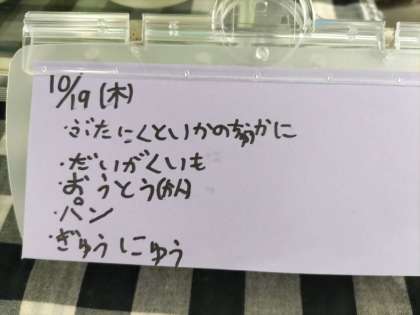 10/19 (木)
・ぶたにくといかの かに
・だいがくいも
・おうとう(かん)
・パン
・ぎゅうにゅう